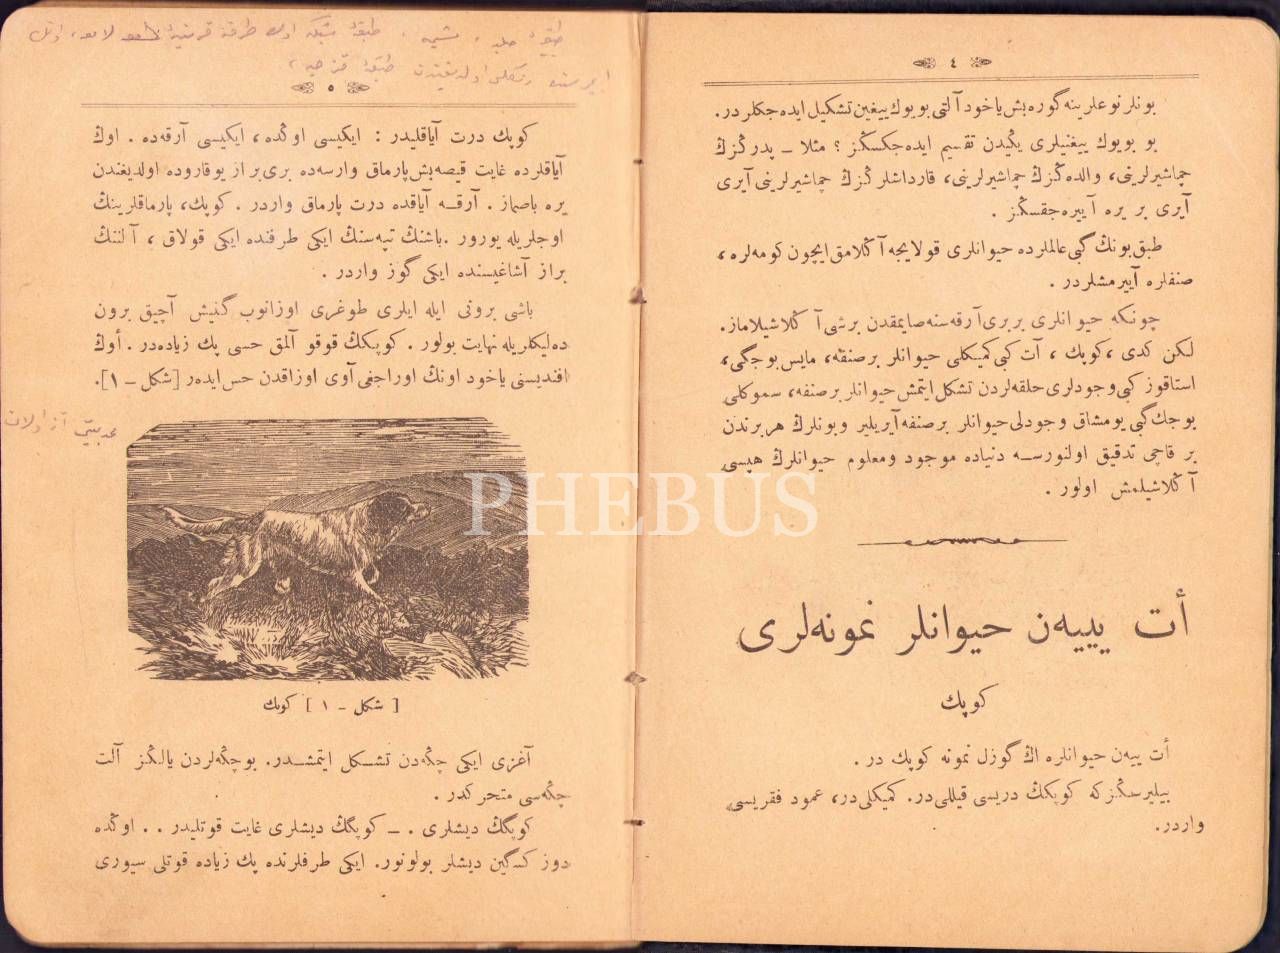 ٤
بونلر نوعلرینه گوره بش یاخود آلتی بویوك ییغین تشكیل ایده جكلر در.
بو بویوك ییغینلری یڭیدن تقسیم ایده جكسڭز ؟ مثلا ــ پدرڭزڭ
چماشیرلرینی، والده ڭزڭ چماشیرلرینی، قارداشلرڭزڭ چماشیرلرینی آیری
آیری بر یره آییره جقسڭز .
طبق بونڭ گبی عالملرده حیوانلری قولایجه آڭلامق ایچون كومه لره،
صنفلره آییرمشلردر .
چونكه حیوانلری بربری آرقه سنه صایمقدن برشی آڭلاشیلاماز.
لكن كدی ، كوپك ، آت گبی كمیكلی حیوانلر بر صنفه، مایس بوجگی،
استاقوز گبی وجودلری حلقه لردن تشكل ایتمش حیوانلر بر صنفه، سموكلی
بوجك گبی یومشاق وجودلی حیوانلر بر صنفه آیریلیر و بونلرڭ هر برندن
بر قاچی تدقیق اولنورسه دنیاده موجود ومعلوم حیوانلرڭ هپسی
آڭلاشیلمش اولور .
أت ییيه ن حیوانلر نمونه لری
كوپك
أت ییه ن حیوانلره اڭ گوزل نمونه كوپك در .
بیلیرسڭز كه كوپكڭ دریسی قیللی در. كمیكلی در، عمود فقریسی
واردر.
٥
كوپك درت آیاقلیدر : ایكیسی اوڭده، ایكیسی آرقه ده . اوڭ
آیاقلرده غایت قیصه بش پارماق وارسه ده بری براز یوقاروده اولدیغندن
یره باصماز . آرقه آیاقده درت پارماق واردر . كوپك، پارماقلرینڭ
اوجلریله یورور . باشنڭ تپه سنڭ ایكی طرفنده ایكی قولاق ، آلننڭ
براز آشاغیسنده ایكی گوز واردر .
باشی برونی ایله ایلری طوغری اوزانوب گنیش آچیق برون
ده لیكلریله نهایت بولور . كوپكڭ قوقو آلمق حسی پك زیاده در . أوڭ
افندیسنی یاخود اونڭ اوراجغی آوی اوزاقدن حس ایده ر [شكل ــ ١].
[ شكل ــ ١ ] كوپك
آغزی ایكی چڭه دن تشكل ایتمشدر. بو چڭه لردن یالڭز آلت
چڭه سی متحركدر .
كوپگڭ دیشلری . ــ كوپگڭ دیشلری غایت قوتلیدر . . اوڭده
دوز كسگین دیشلر بولونور. ایكی طرفلرنده پك زیاده قوتلی سیوری
PHEBUS